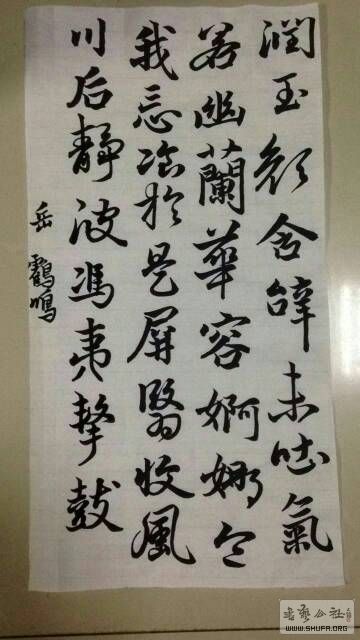 潤玉顔含辞未吐氣
若幽蘭華容婀娜令
我忘飡於是屏翳收風
川后靜波馮夷擊鼓
岳 靏鳴
書法公社
WWW.SHUFA.ORG